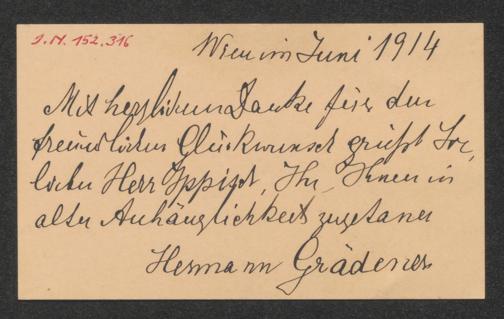 J.N. 152.316
Wien im Juni 1914
Mit herzlichem Danke für den
freundlichen Glückwunsch grüßt Sie,
lieber Herr Ippisch, Ihr, Ihnen in
alter Anhänglichkeit zugetaner
Hermann Grädener